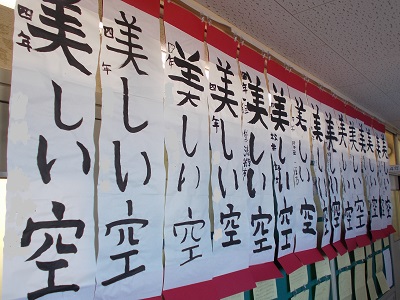 美しい空
四年
美しい空
四年
美しい空
四年
美しい空
四年
美しい空
美しい空
美しい空
美しい空
美しい空
美しい空
美しい空
美しい空
美しい空